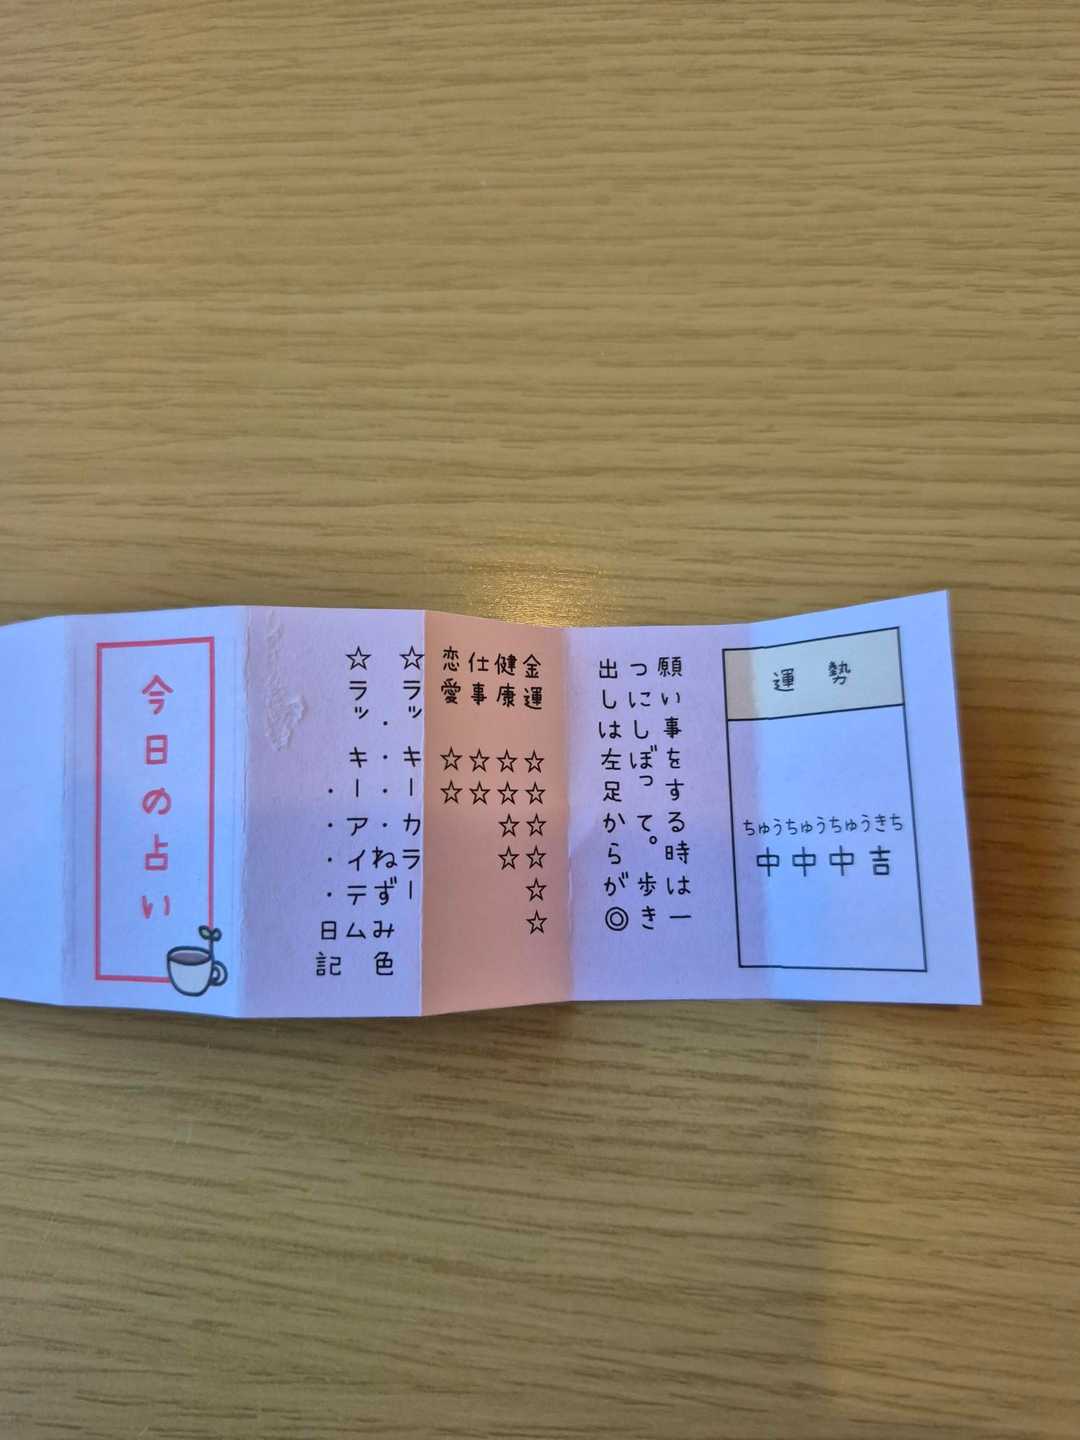 運勢
ちゅうちゅうちゅうきち
中中中吉
願い事をする時は一
つにしぼって。歩き
出しは左足からが◎
金運 ☆☆☆☆☆☆
健康 ☆☆☆☆
仕事 ☆☆
恋愛 ☆☆
☆ラッキーカラー
・・・・ねずみ色
☆ラッキーアイテム
・・・・日記
今日の占い